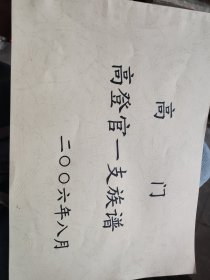 高门
高登官一支族谱
二〇〇六年八月